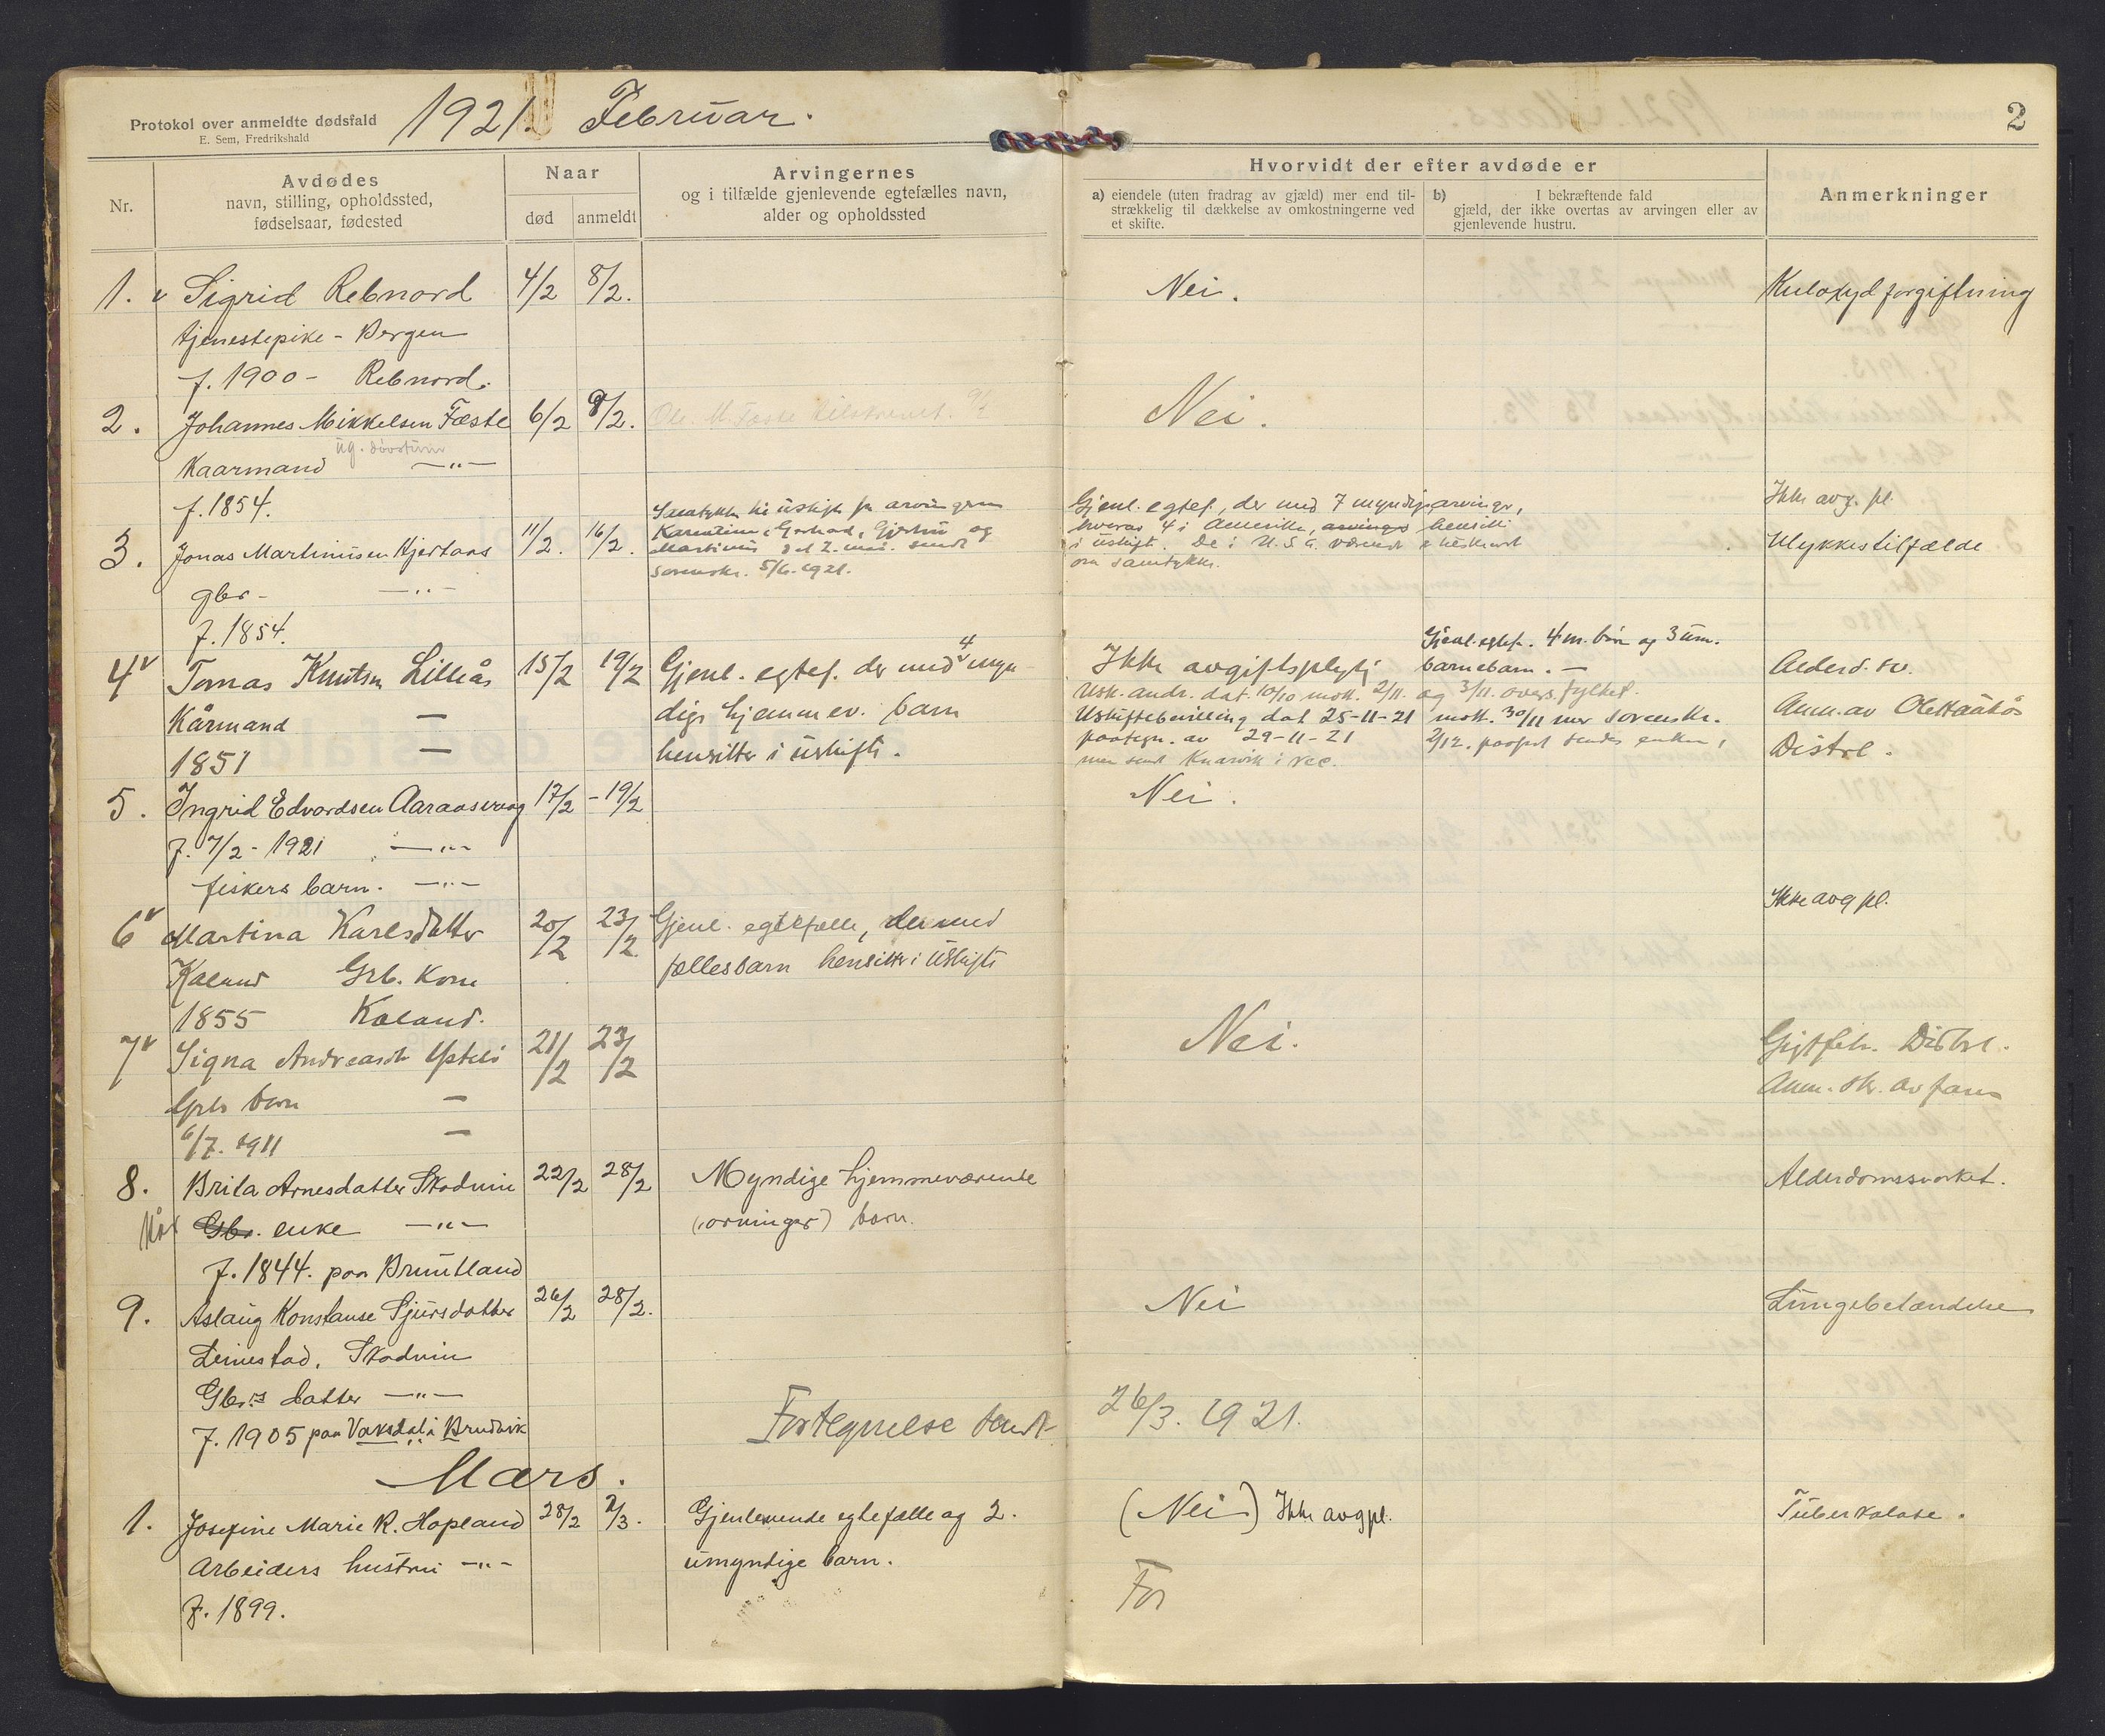 Protokol over anmeldte dødsfald
E. Sem, Fredrikshald
1921. Februar.
2
Nr.
Avdødes
navn, stilling, opholdssted,
fødselsaar, fødested
Naar
død
anmeldt
Arvingernes
og i tilfælde gjenlevende egtefælles navn,
alder og opholdssted
Hvorvidt der efter avdøde er
a) eiendele (uten fradrag av gjæld) mer end til-
strækkelig til dækkelse av omkostningerne ved
et skifte.
b) I bekræftende fald
gjæld, der ikke overtas av arvingen eller av
gjenlevende hustru.
Anmerkninger
1. v Sigrid Rebnord 4/2 8/2. Nei. Kuloxydforgiftning
tjenestepike - Bergen
f. 1900 - Rebnord.
2. Johannes Mikkelsen Fæste 6/2 8/2. Nei.
ug.
Kaarmand —"—
f. 1854.
3. Jonas Martinusen Hjertaas 11/2. 16/2.
gbr - —"—
f. 1854.
Samtykke til uskifte fra
og
Martinus 2. mai. sendt
Sorenskr. 5/6. 1921.
Gjenl. egtef., der med 7 myndige arvinger,
hvorav 4 i Amerika, hensitter
i uskifte. De i U.S.A. værende
om samtykke.
Ikke avg. pl.
Ulykkestilfælde
4 v Tomas Knutsen Lilleås 15/2 19/2 Gjenl. egtef. der med 4 myn-
Kårmand — dige hjemmev. barn
1851 — hensitter i uskifte.
Ikke avgiftspligtig
Gjenl. egtef. 4 m. børn og 3 um.
barnebarn. —
Usk. andr. dat. 10/10 mott. 2/11. og 3/11. overs. fylket.
Uskiftebevilling dat 25-11-21 mott. 30/11 mer Sorenskr.
paategn. av 29-11-21 2/12. sendes enken,
men sendt Knarvik i rec.
Alderd. sv.
Anm. av
Distrl.
5. Ingrid Edvardsen Aaraasvaag 17/2 - 19/2 Nei.
f. 7/2 - 1921 —"—
fiskers barn. —"—
6 v Martina Karlsdatter 20/2 23/2 Gjenl. egtefælle, der med
Kaland Grb. Kone fællesbarn hensitter i Uskifte
1855 Kaland.
Ikke avg pl.
7 v Signa Andreasdt 21/2 23/2 Nei. Gigtfeb. Distrl.
Grbs barn — Anm. skr. av faren
6/7. 1911 —
8. Brita Arnesdatter Skodvin 22/2 28/2 Myndige hjemmeværende Alderdomssvækket.
Kår Gbr. enke —"— (arvinger) barn.
f. 1844. paa Bruntland
9. Aslaug Konstanse Sjursdatter 26/2 28/2. Nei Lungebetændelse
Leinestad, Skodvin
Gbr.s datter —"—
f. 1905 paa Vaksdal i Bruvik
Fortegnelse sendt 26/3. 1921.
Mars.
1. Josefine Marie R. Hopland 28/2 2/3. Gjenlevende egtefælle og 2. (Nei) Ikke avgpl. Tuberkulose.
Arbeiders hustru —"— umyndige barn.
f. 1899.
For